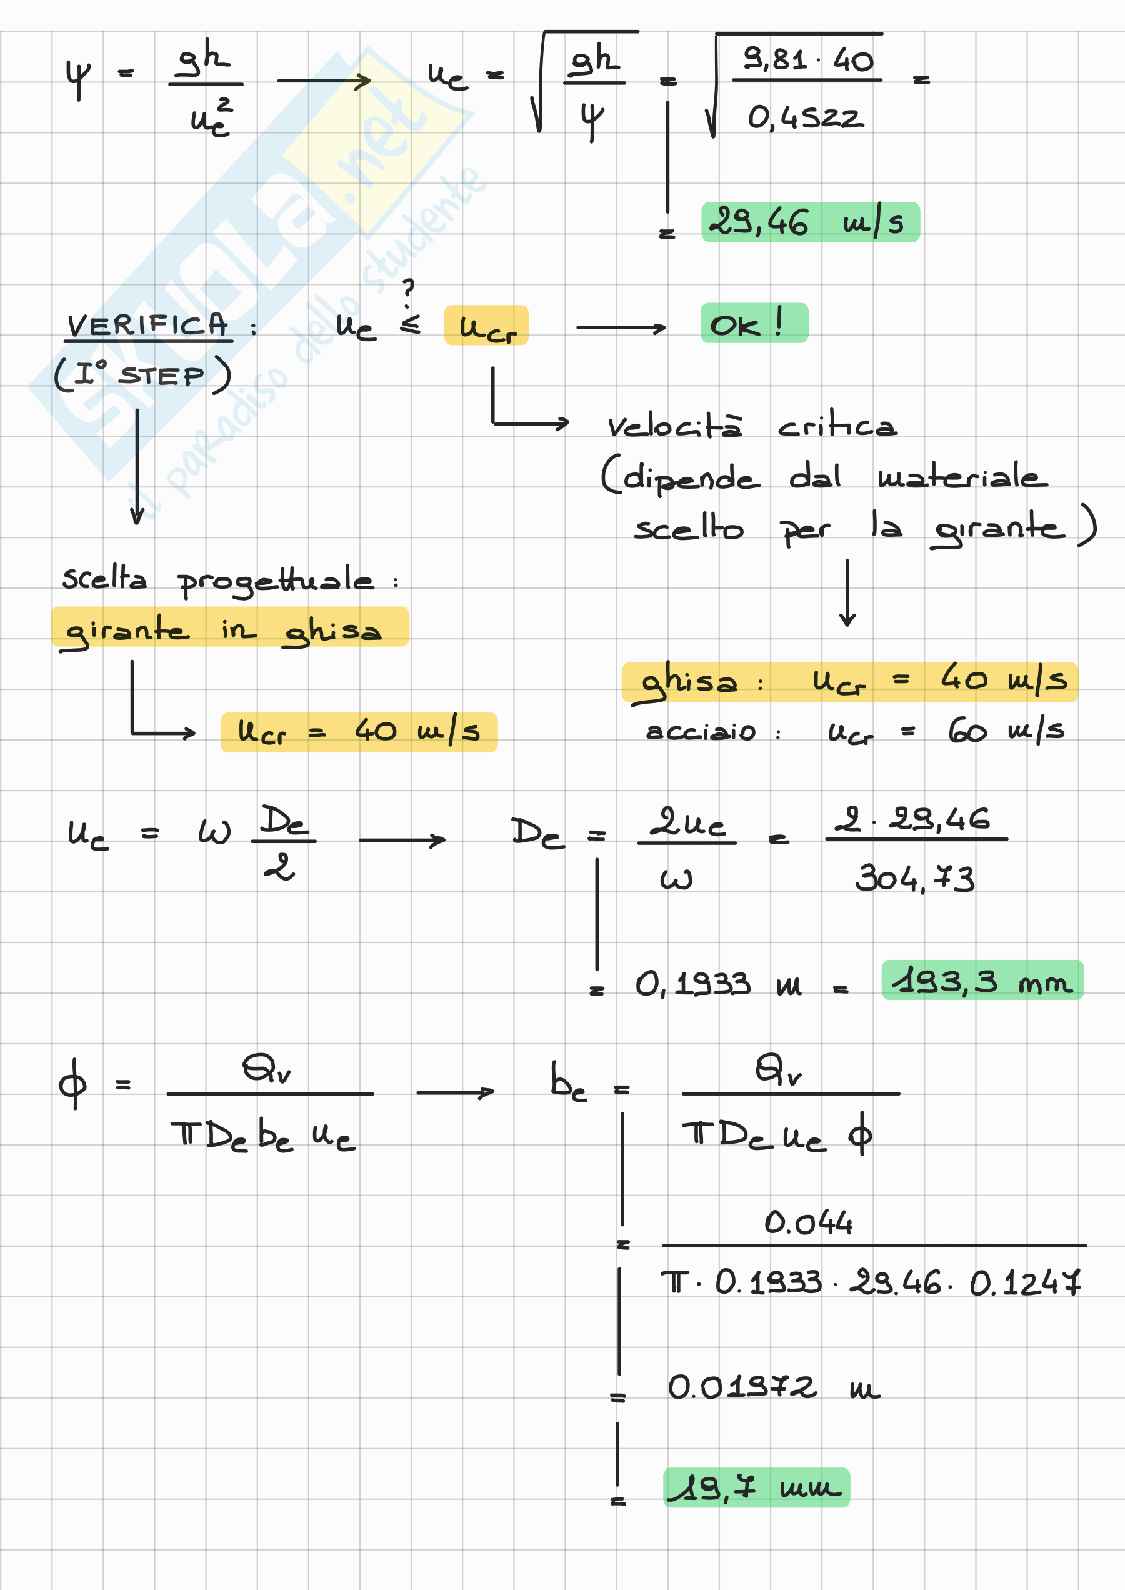 ψ = gh / u_e² → u_e = √(gh / ψ) = √(9,81 · 40 / 0,4522) =
= 29,46 m/s
VERIFICA : u_e ≤? u_cr → OK!
(I° STEP)
velocità critica
(dipende dal materiale
scelto per la girante)
scelta progettuale :
girante in ghisa
ghisa : u_cr = 40 m/s
u_cr = 40 m/s
acciaio : u_cr = 60 m/s
u_e = ω D_e / 2 → D_e = 2u_e / ω = 2 · 29,46 / 304,73
= 0,1933 m = 193,3 mm
ϕ = Q_v / (π D_e b_e u_e) → b_e = Q_v / (π D_e u_e ϕ)
= 0.044 / (π · 0.1933 · 29.46 · 0.1247)
= 0.01972 m
= 19,7 mm
SKUOLA.net
il paradiso dello studente